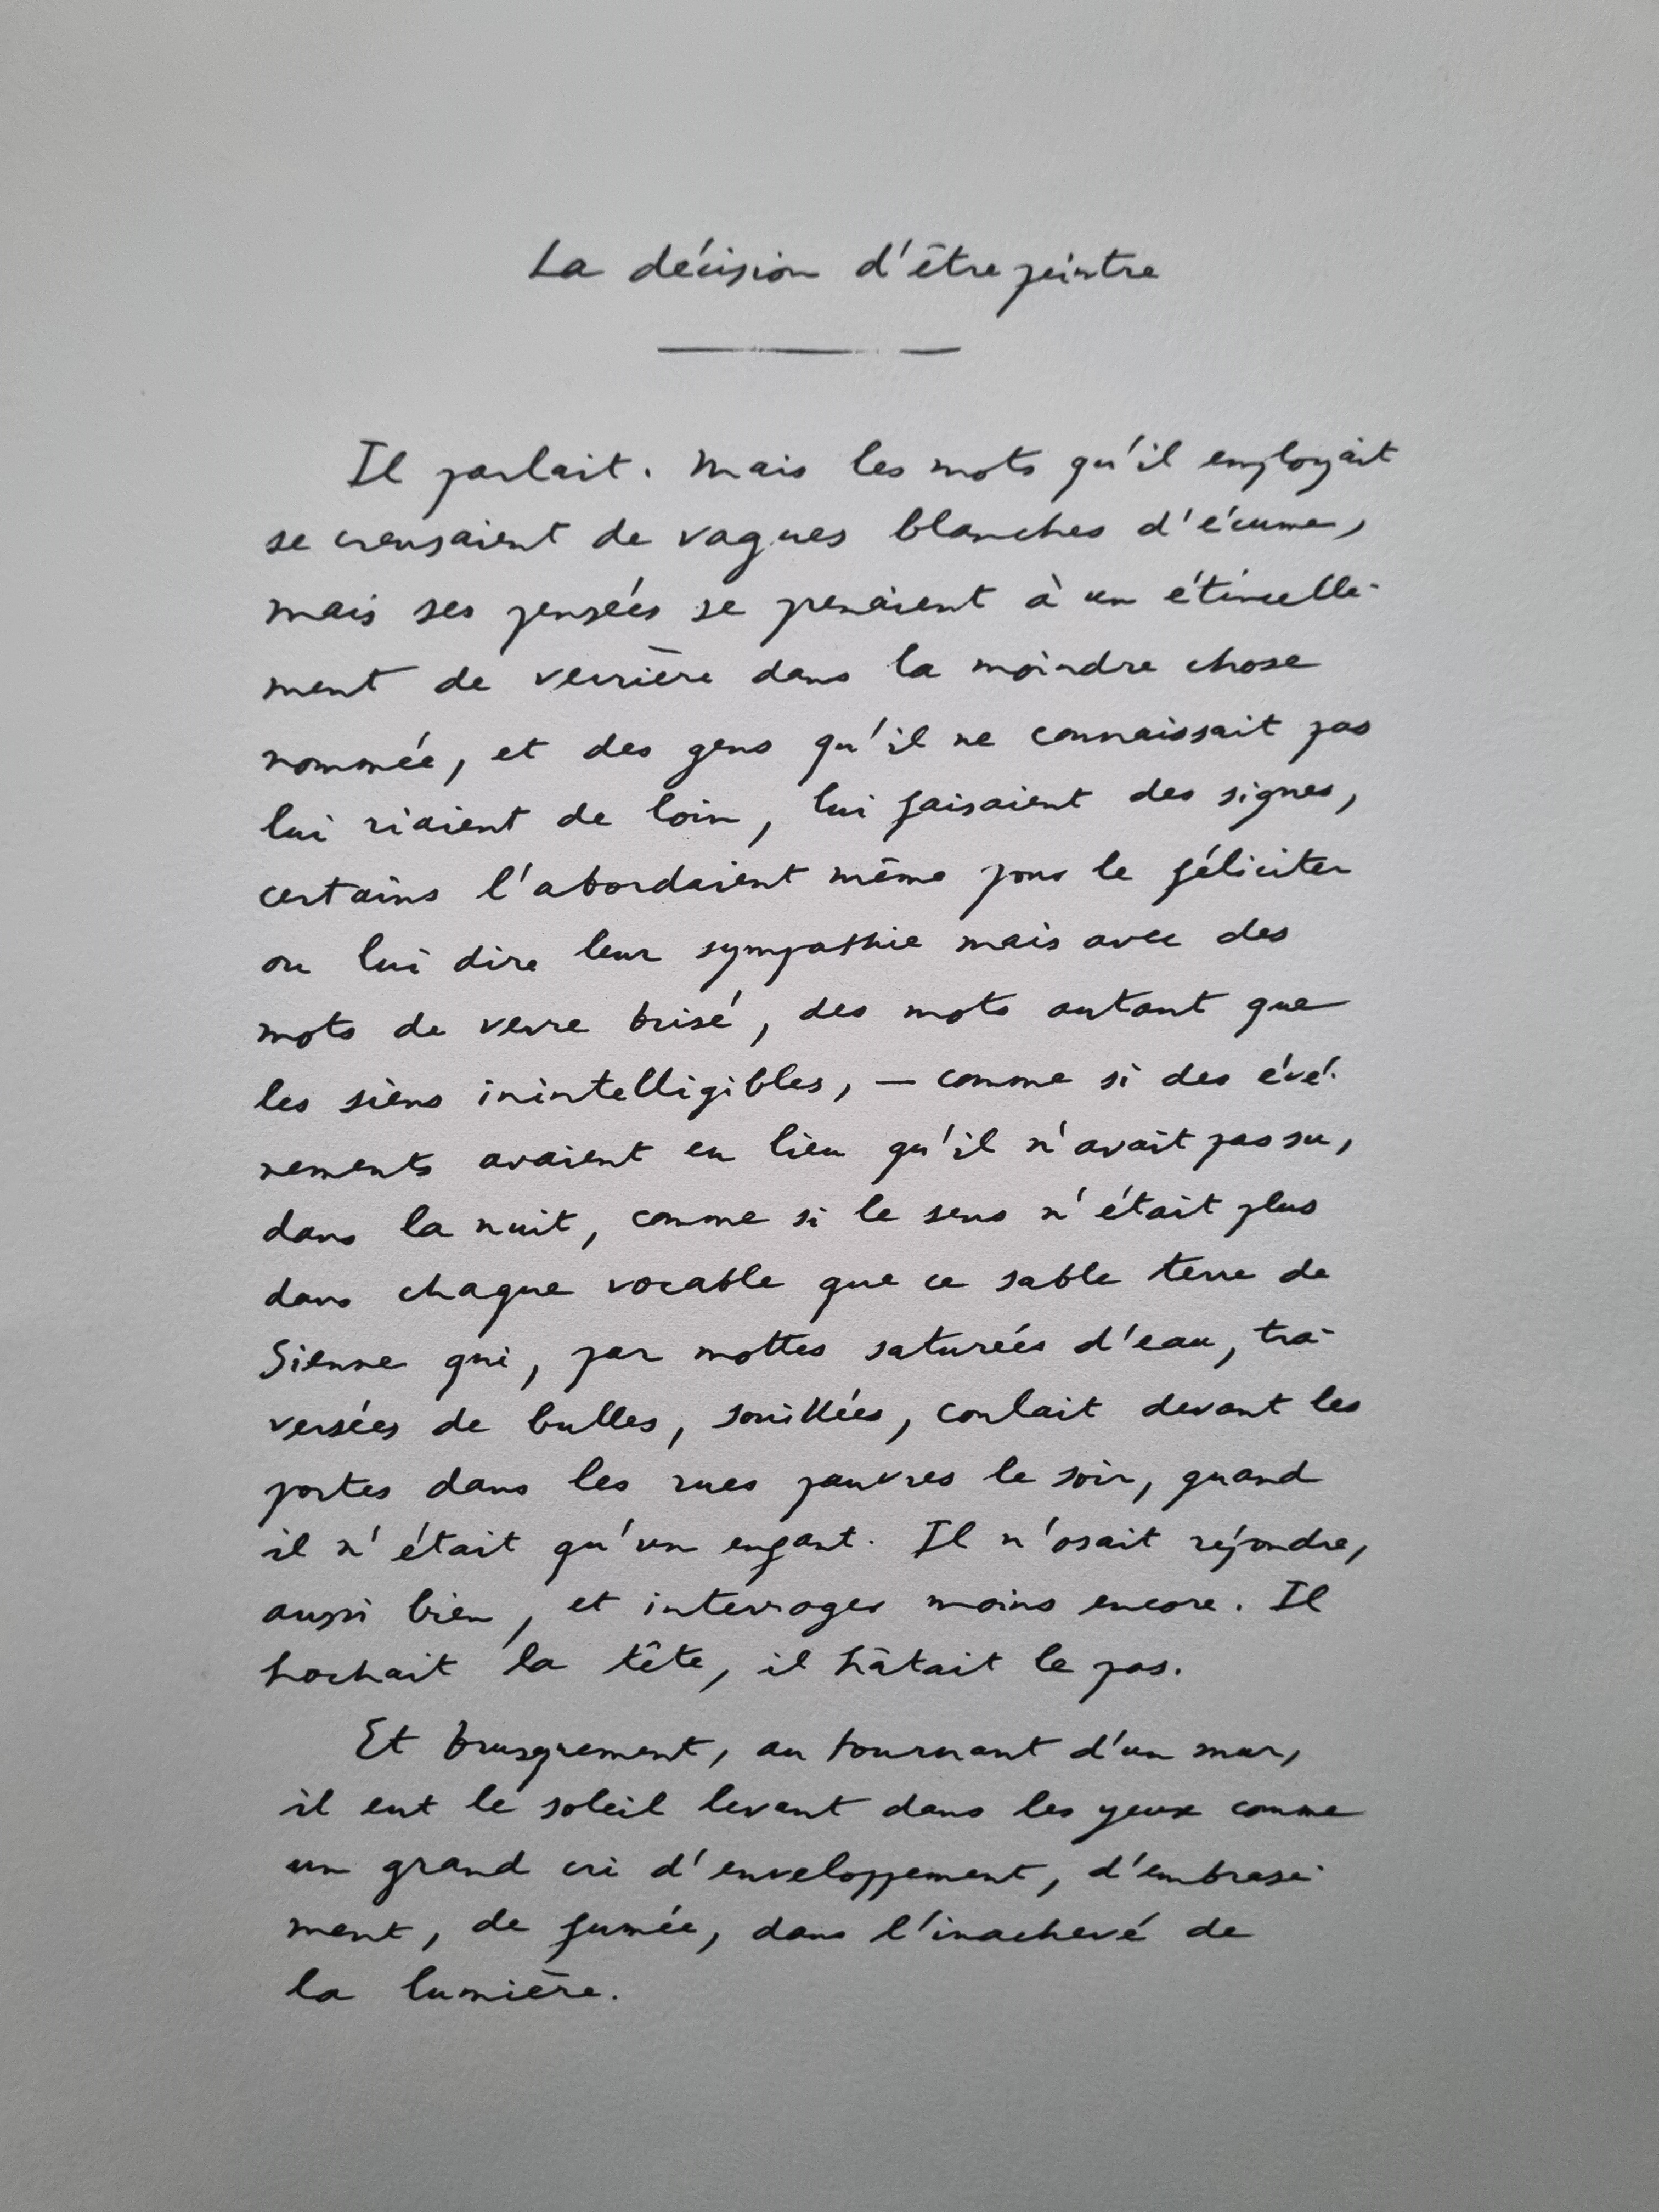 La décision d'être peintre
Il parlait. Mais les mots qu'il employait
se creusaient de vagues blanches d'écume,
mais ses pensées se prenaient à un étincelle-
ment de verrière dans la moindre chose
nommée, et des gens qu'il ne connaissait pas
lui riaient de loin, lui faisaient des signes,
certains l'abordaient même pour le féliciter
ou lui dire leur sympathie mais avec des
mots de verre brisé, des mots autant que
les siens inintelligibles, — comme si des évé-
nements avaient eu lieu qu'il n'avait pas su,
dans la nuit, comme si le sens n'était plus
dans chaque vocable que ce sable terre de
Sienne qui, par mottes saturées d'eau, tra-
versées de bulles, souillées, coulait devant les
portes dans les rues pauvres le soir, quand
il n'était qu'un enfant. Il n'osait répondre,
aussi bien, et interroger moins encore. Il
hochait la tête, il hâtait le pas.
Et brusquement, au tournant d'un mur,
il eut le soleil levant dans les yeux comme
un grand cri d'enveloppement, d'embrase-
ment, de fumée, dans l'inachevé de
la lumière.